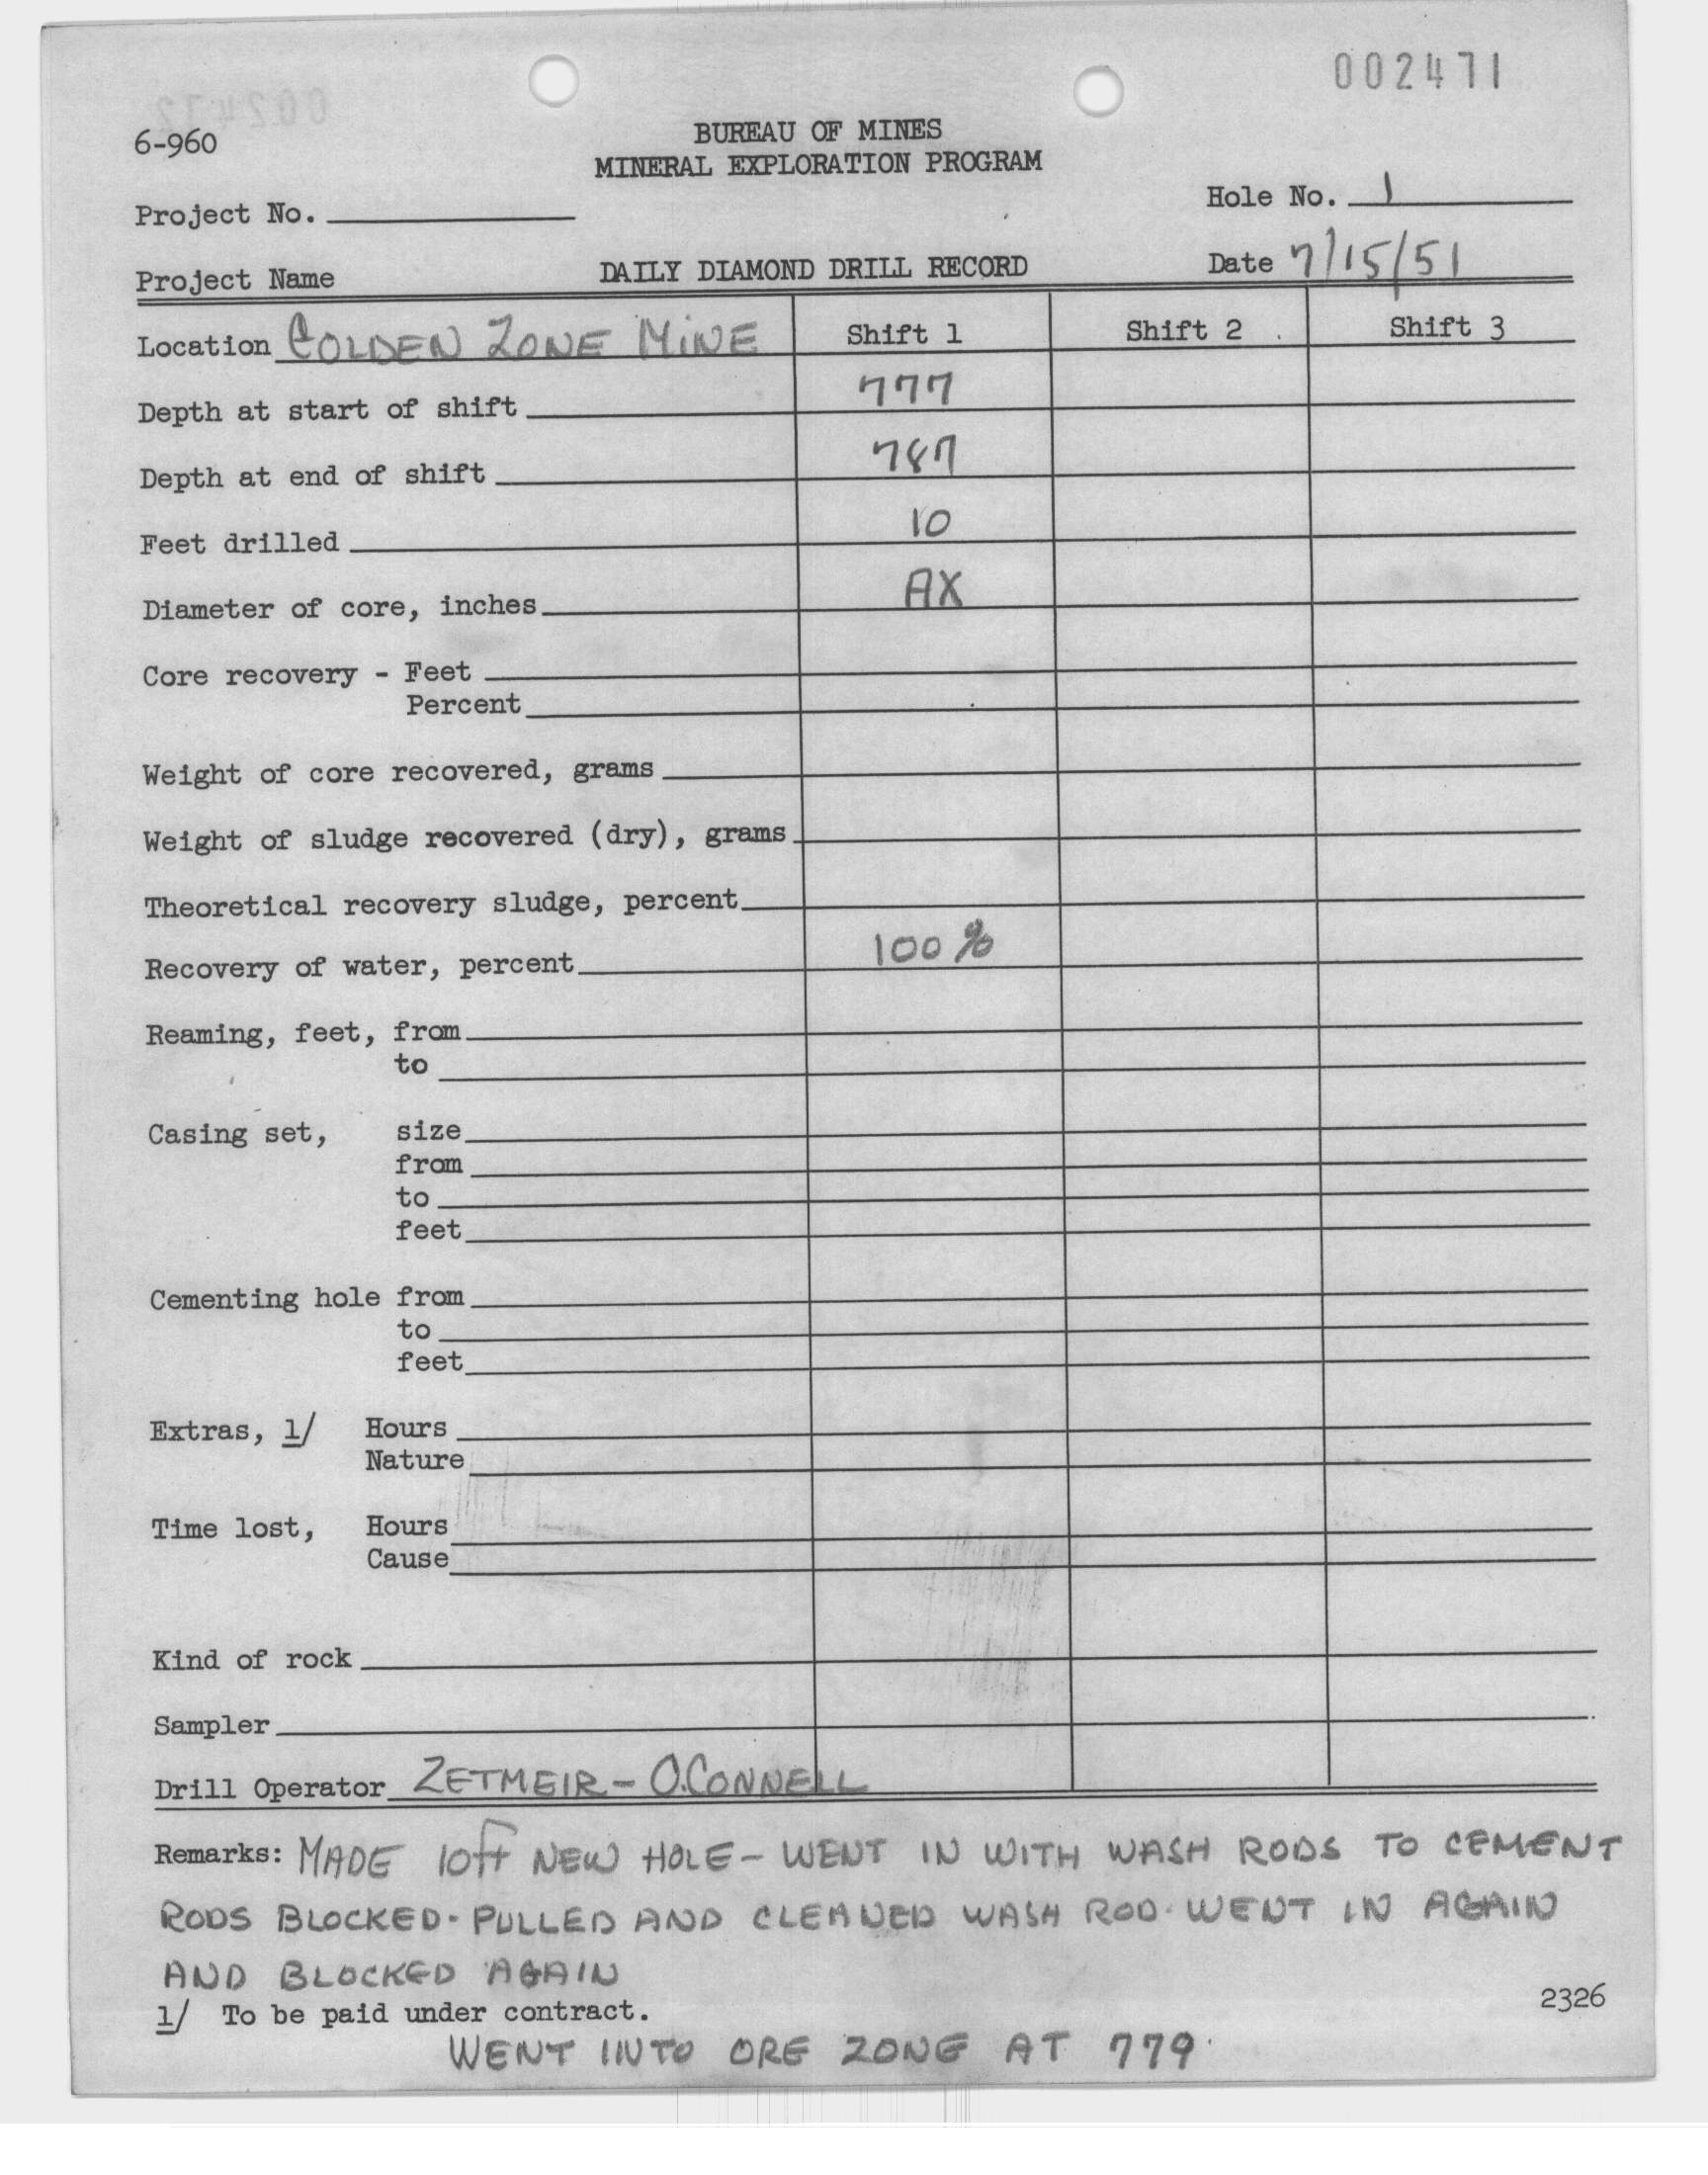 002471
6-960
BUREAU OF MINES
MINERAL EXPLORATION PROGRAM
Hole No. 1
Project No.
Project Name
DAILY DIAMOND DRILL RECORD
Date 7/15/51
Location GOLDEN ZONE MINE Shift 1 Shift 2 Shift 3
Depth at start of shift 777
Depth at end of shift 787
Feet drilled 10
Diameter of core, inches AX
Core recovery - Feet
Percent
Weight of core recovered, grams
Weight of sludge recovered (dry), grams
Theoretical recovery sludge, percent
Recovery of water, percent 100%
Reaming, feet, from
to
Casing set, size
from
to
feet
Cementing hole from
to
feet
Extras, 1/ Hours
Nature
Time lost, Hours
Cause
Kind of rock
Sampler
Drill Operator ZETMEIR - O.CONNELL
Remarks: MADE 10ft NEW HOLE - WENT IN WITH WASH RODS TO CEMENT
RODS BLOCKED - PULLED AND CLEANED WASH ROD. WENT IN AGAIN
AND BLOCKED AGAIN
1/ To be paid under contract.
2326
WENT INTO ORE ZONE AT 779.